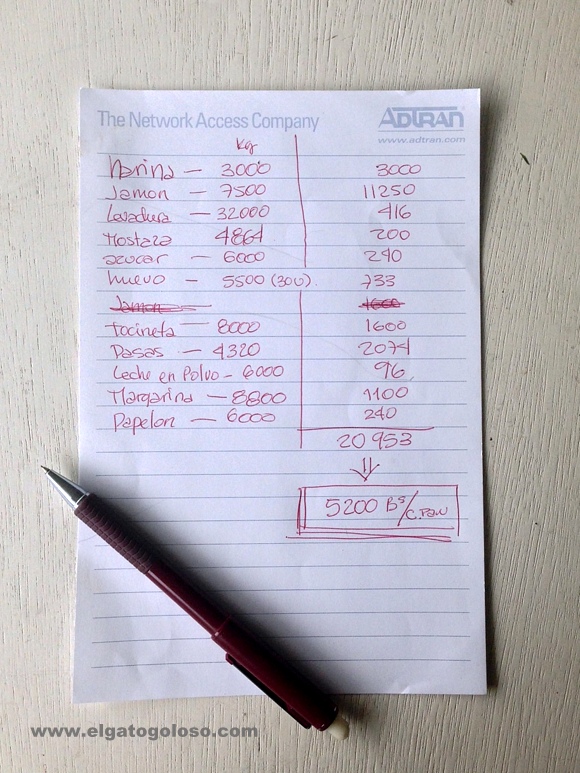 The Network Access Company ADTRAN
www.adtran.com
Kg
Harina — 3000 3000
Jamon — 7500 11250
Levadura — 32000 416
Mostaza 4864 200
azucar — 6000 240
huevo — 5500 (30U). 733
Jamon — 1600
Tocineta — 8000 1600
Pasas — 4320 2074
Leche en Polvo - 6000 96
Margarina — 8800 1100
Papelon — 6000 240
20953
5200 Bs/c.Pan
www.elgatogoloso.com